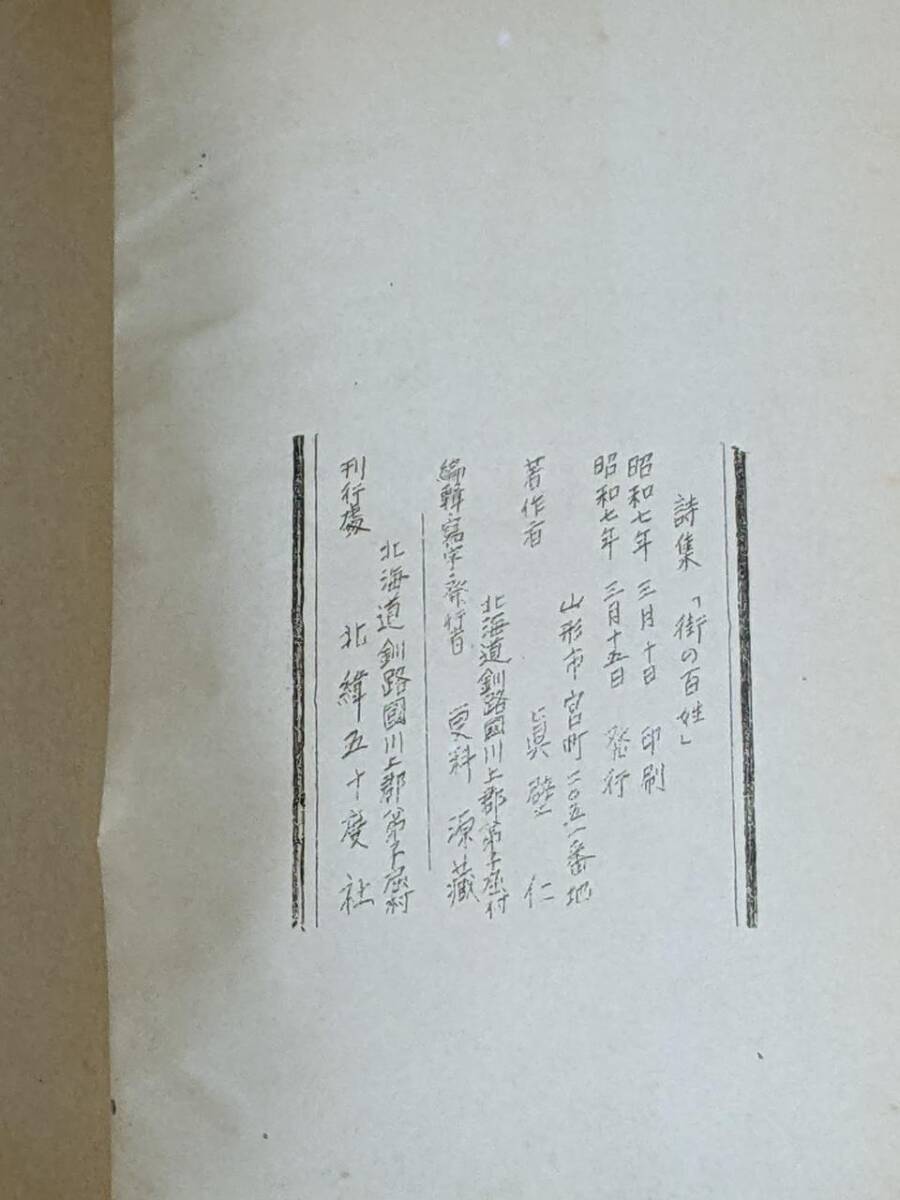 詩集「街の百姓」
昭和七年 三月十日 印刷
昭和七年 三月十五日 発行
山形市宮町二〇五一番地
著作者 眞壁仁
北海道釧路國川上郡弟子屈村
編輯・寫字・発行者 更科源藏
北海道釧路國川上郡弟子屈村
刊行場 北緯五十度社